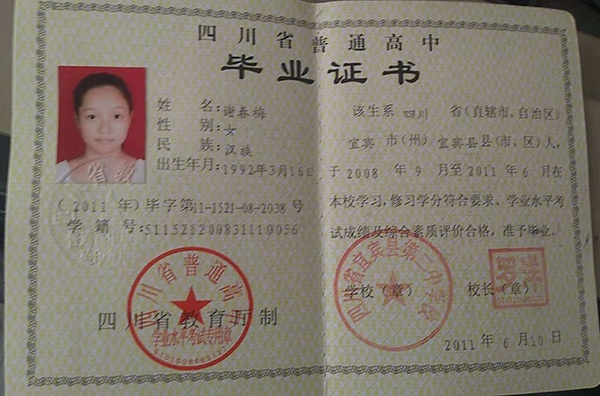 四川省普通高中
毕业证书
姓 名:谢春梅
性 别:女
民 族:汉族
出生年月:1992年3月16日
(2011 年)毕字第11-1521-08-2038 号
学 籍 号:511521200831110056
四川省教育厅制
四川省普通高中
学业水平考试专用章
该生系 四川 省(直辖市、自治区)
宜宾 市(州) 宜宾县县(市、区)人,
于 2008 年 9 月至 2011 年 6 月在
本校学习,修习学分符合要求、学业水平考
试成绩及综合素质评价合格,准予毕业。
学校(章) 校长(章)
四川省宜宾县第二中学校
2011 年 6 月 10 日